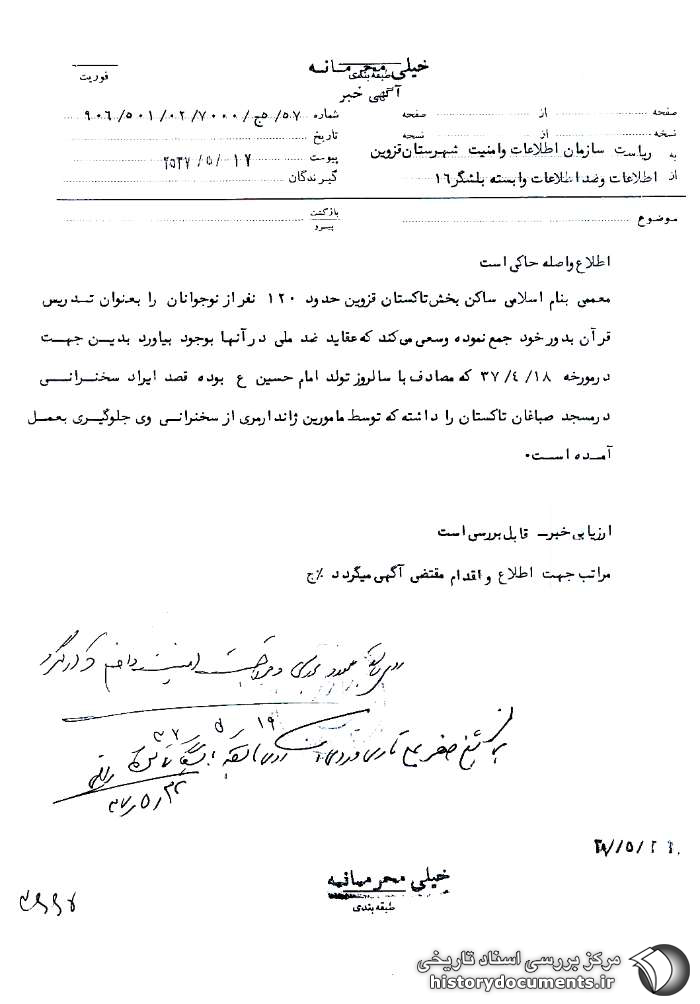 خیلی محرمانه
طبقه‌بندی
فوریت
آگهی خبر
صفحه از صفحه شماره ۵۷/ ۵ج/ ۷۰۰۰/ ۰۲/ ۵۰۱/ ۹۰۶
نسخه از نسخه تاریخ
به ریاست سازمان اطلاعات وامنیت شهرستان قزوین پیوست ۱۷ /۵/ ۲۵۳۷
از اطلاعات وضد اطلاعات وابسته بلشگر ۱۶ گیرندگان
موضوع بازگشت پیرو
اطلاع واصله حاکی است
معممی بنام اسلامی ساکن بخش تاکستان قزوین حدود ۱۲۰ نفر از نوجوانان را بعنوان تدریس
قرآن بدور خود جمع نموده وسعی می کند که عقاید ضد ملی در آنها بوجود بیاورد بدین جهت
در مورخه ۱۸/ ۴/ ۳۷ که مصادف با سالروز تولد امام حسین ع بوده قصد ایراد سخنرانی
در مسجد صباغان تاکستان را داشته که توسط مامورین ژاندارمری از سخنرانی وی جلوگیری بعمل
آمده است.
ارزیابی خبر – قابل بررسی است
مراتب جهت اطلاع و اقدام مقتضی آگهی میگردد %ج
خیلی محرمانه
طبقه‌بندی
مرکز بررسی اسناد تاریخی
historydocuments.ir